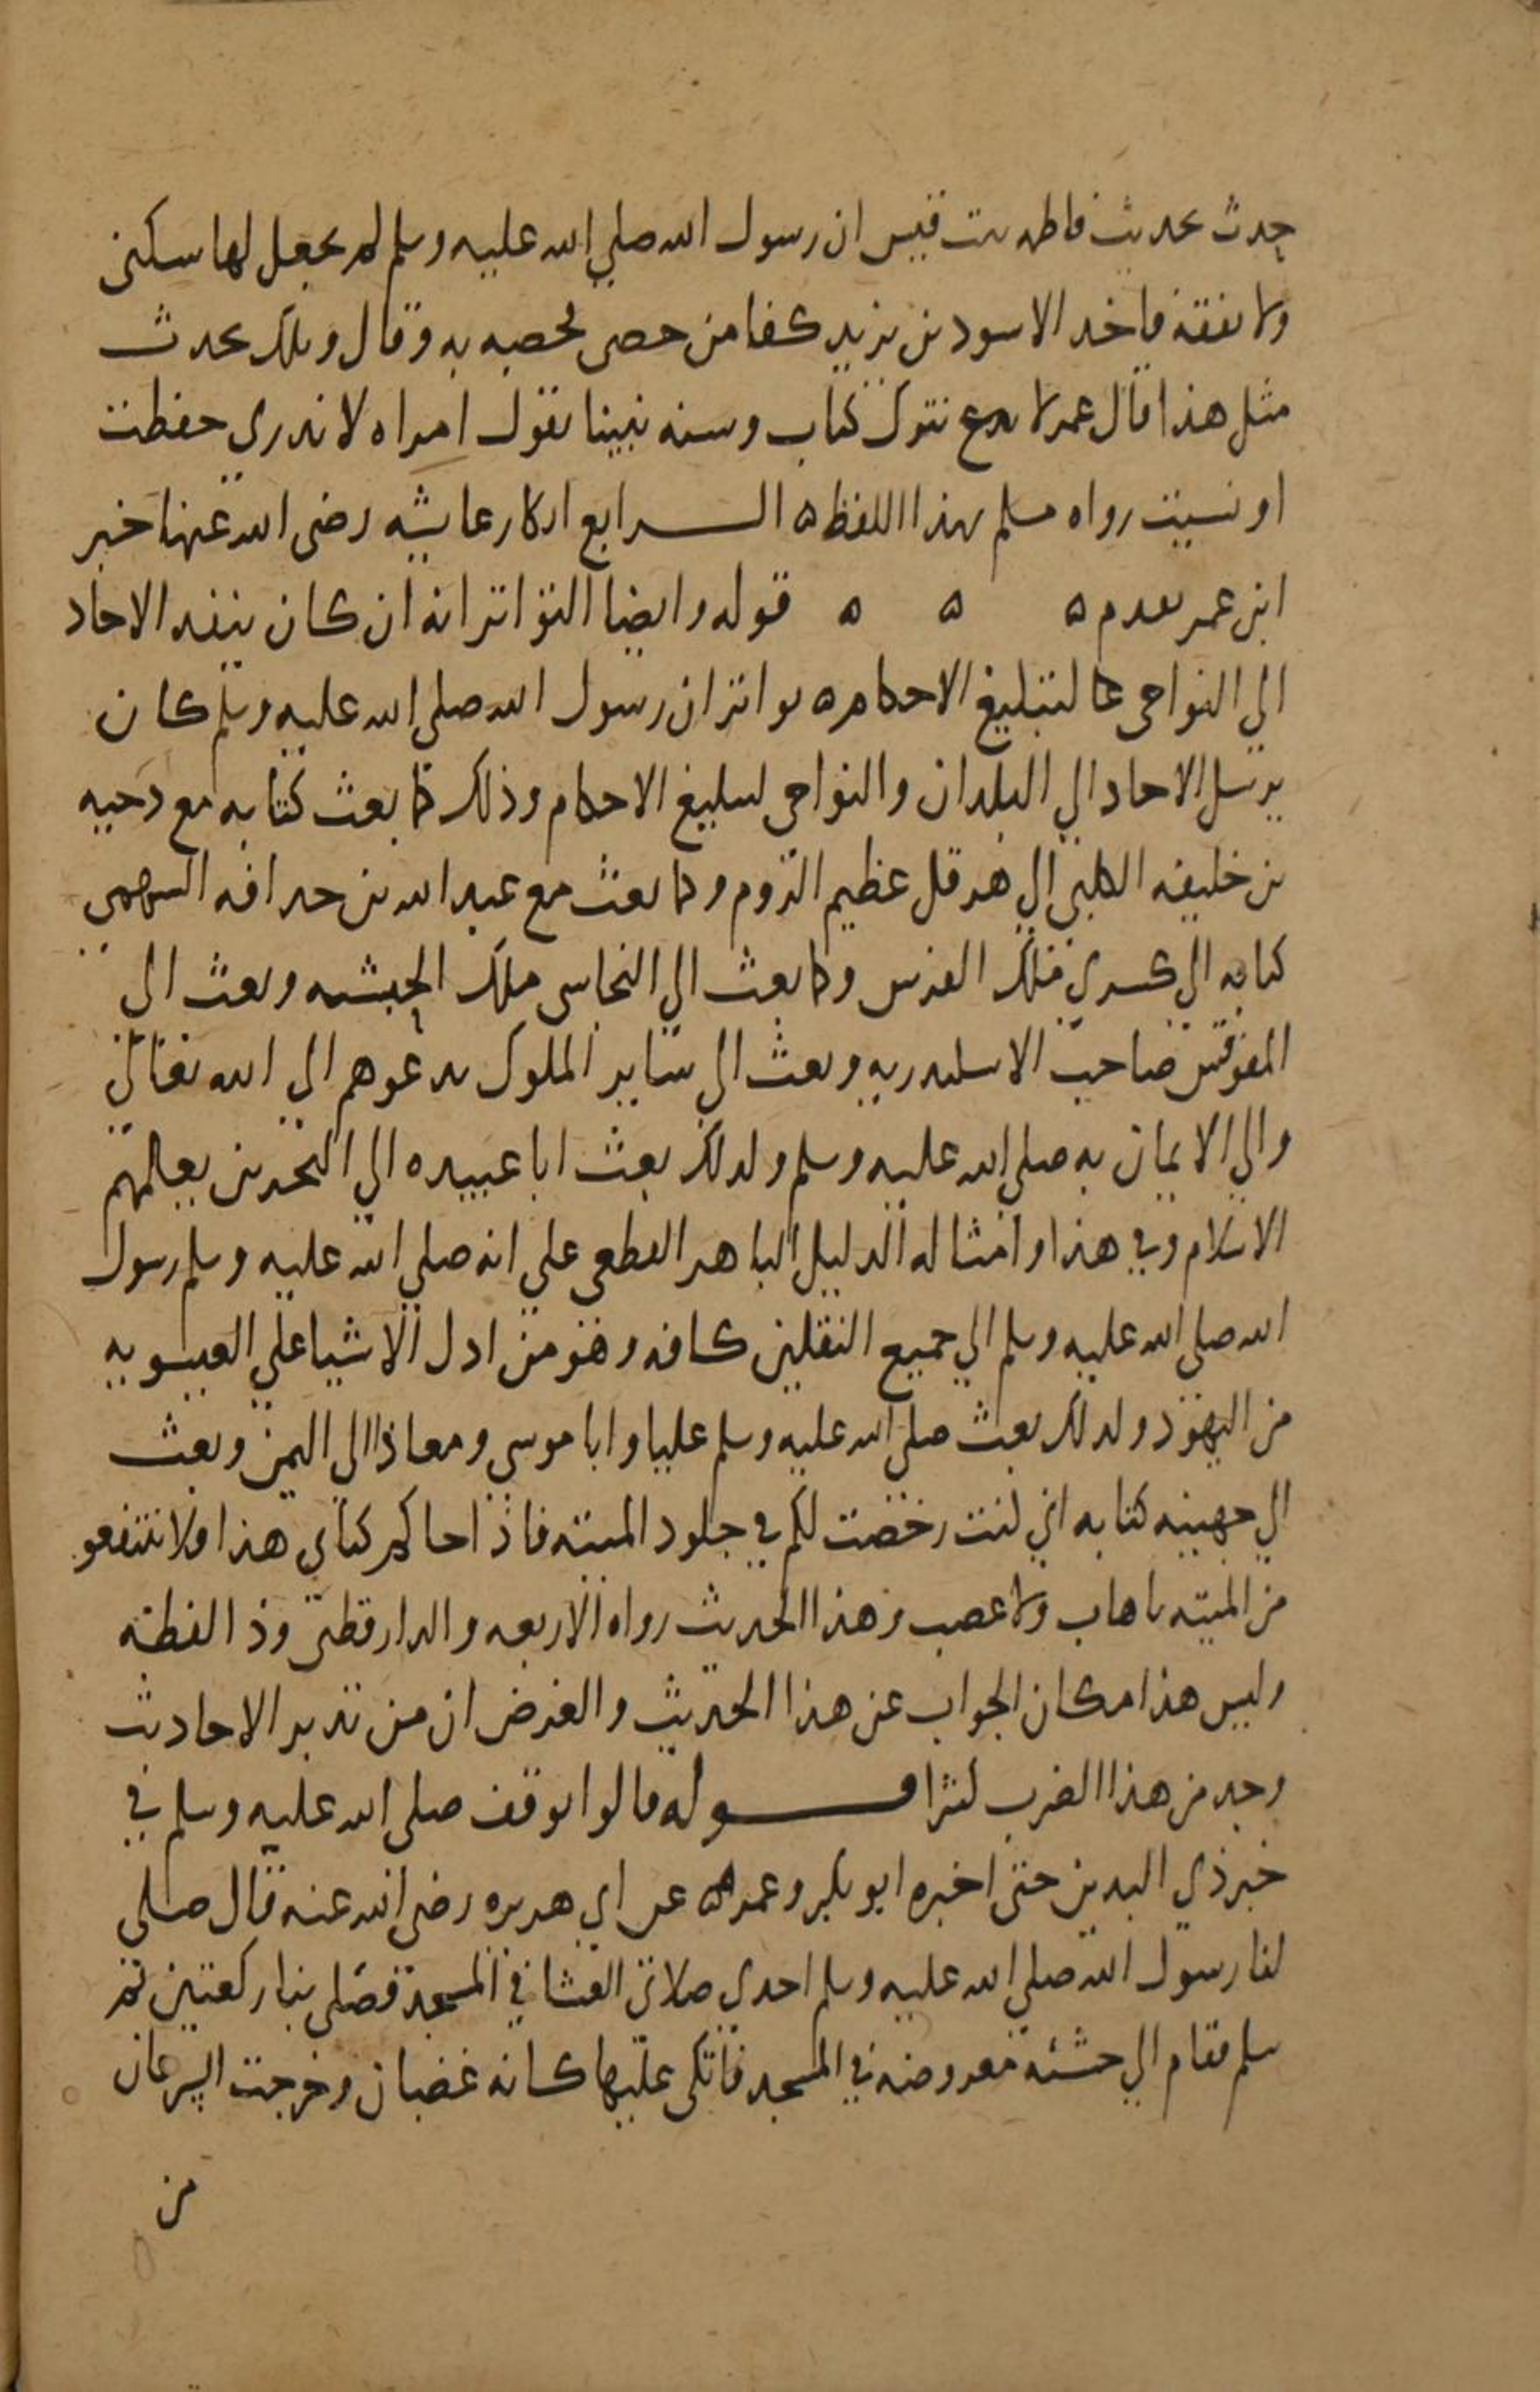 حدث بحديث فاطمه بنت قيس ان رسول الله صلي الله عليه وسلم لم يجعل لها سكنى
ولا نفقه فاخد الاسود بن يزيد كفا من حصى فحصبه به وقال ويلك تحدث
مثل هذا قال عمر لا ندع نترك كتاب وسنه نبينا بقول امراه لا ندري حفظت
او نسيت رواه مسلم بهذا اللفظ ه الرابع انكار عايشه رضى الله عنها خبر
ابن عمر تقدم ه ه ه قوله وايضا التواتر انه ان كان ينفد الاحاد
الي النواحى لتبليغ الاحكام ه تواتر ان رسول الله صلي الله عليه وسلم كان
يرسل الاحاد الي البلدان والنواحى لتبليغ الاحكام وذلك كما بعث كتابه مع دحيه
بن خليفه الكلبي الي هرقل عظيم الروم وكما بعث مع عبد الله بن حدافه السهمي
كتابه الي كسري ملك الفرس وكما بعث الي النجاسى ملك الحبشه وبعث الى
المقوقس صاحب الاسكندريه وبعث الي ساير الملوك يدعوهم الي الله تعالي
والي الايمان به صلي الله عليه وسلم ولدلك بعث ابا عبيده الي البحرين يعلمهم
الاسلام وفي هذا وامثاله الدليل الباهر القطعى علي انه صلي الله عليه وسلم رسول
الله صلى الله عليه وسلم الي جميع الثقلين كافه وهو من ادل الاشيا علي العيسويه
من اليهود ولدلك بعث صلي الله عليه وسلم عليا وابا موسي ومعاذا الى اليمن وبعث
الي جهينه كتابه اني كنت رخصت لكم في جلود الميته فاذا جاكم كتابي هذا فلا تنتفعو
من الميته باهاب ولا عصب وهذا الحديث رواه الاربعه والدارقطنى وذا لفظه
وليس هذا مكان الجواب عن هذا الحديث والغرض ان من تدبر الاحاديث
وجد من هذا الضرب كثرا قوله قالوا توقف صلى الله عليه وسلم في
خبر ذي اليدين حتى اخبره ابو بكر وعمر ه عن ابي هريره رضى الله عنه قال صلى
لنا رسول الله صلي الله عليه وسلم احدى صلاتى العشا في المسجد فصلى بنا ركعتين ثم
سلم فقام الي خشبه معروضه في المسجد فاتكى عليها كانه غضبان وخرجت السرعان
من